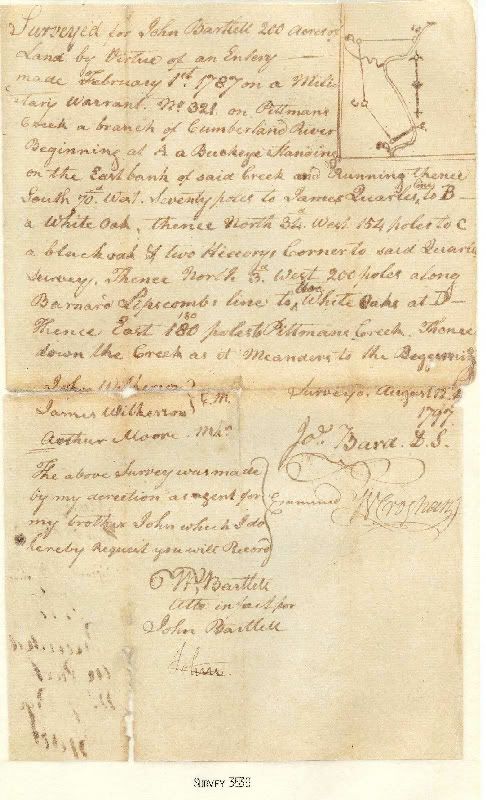 Surveyed for John Bartlett 200 Acres of
Land by Virtue of an Entery
made February 1st 1787 on a Mili-
tary Warrant No 321 on Pittmans
Creek a branch of Cumberland River
Beginning at A a Buckeye Standing
on the East bank of said Creek and Running thence
South 70d West Seventy poles to James Quarles line to B
a White Oak, thence North 34d West 154 poles to C
a black oak & two Hickorys Corner to said Quarls
Survey. Thence North 3d West 200 poles along
Barnard Lipscombs line to two White Oaks at D
Thence East 180 180 poles to Pittmans Creek. Thence
down the Creek as it Meanders to the Beginning
John Wilkerson
James Wilkerson } C.M.
Arthur Moore. Mkr
Surveyd. August 12d
1797
Jos. Bard. D.S.
The above Survey was made
by my direction as agent for
my brother John which I do
hereby Request you will Record
Examined W Croghan
Wm Bartlett
Atto in fact for
John Bartlett
John
SURVEY 3530